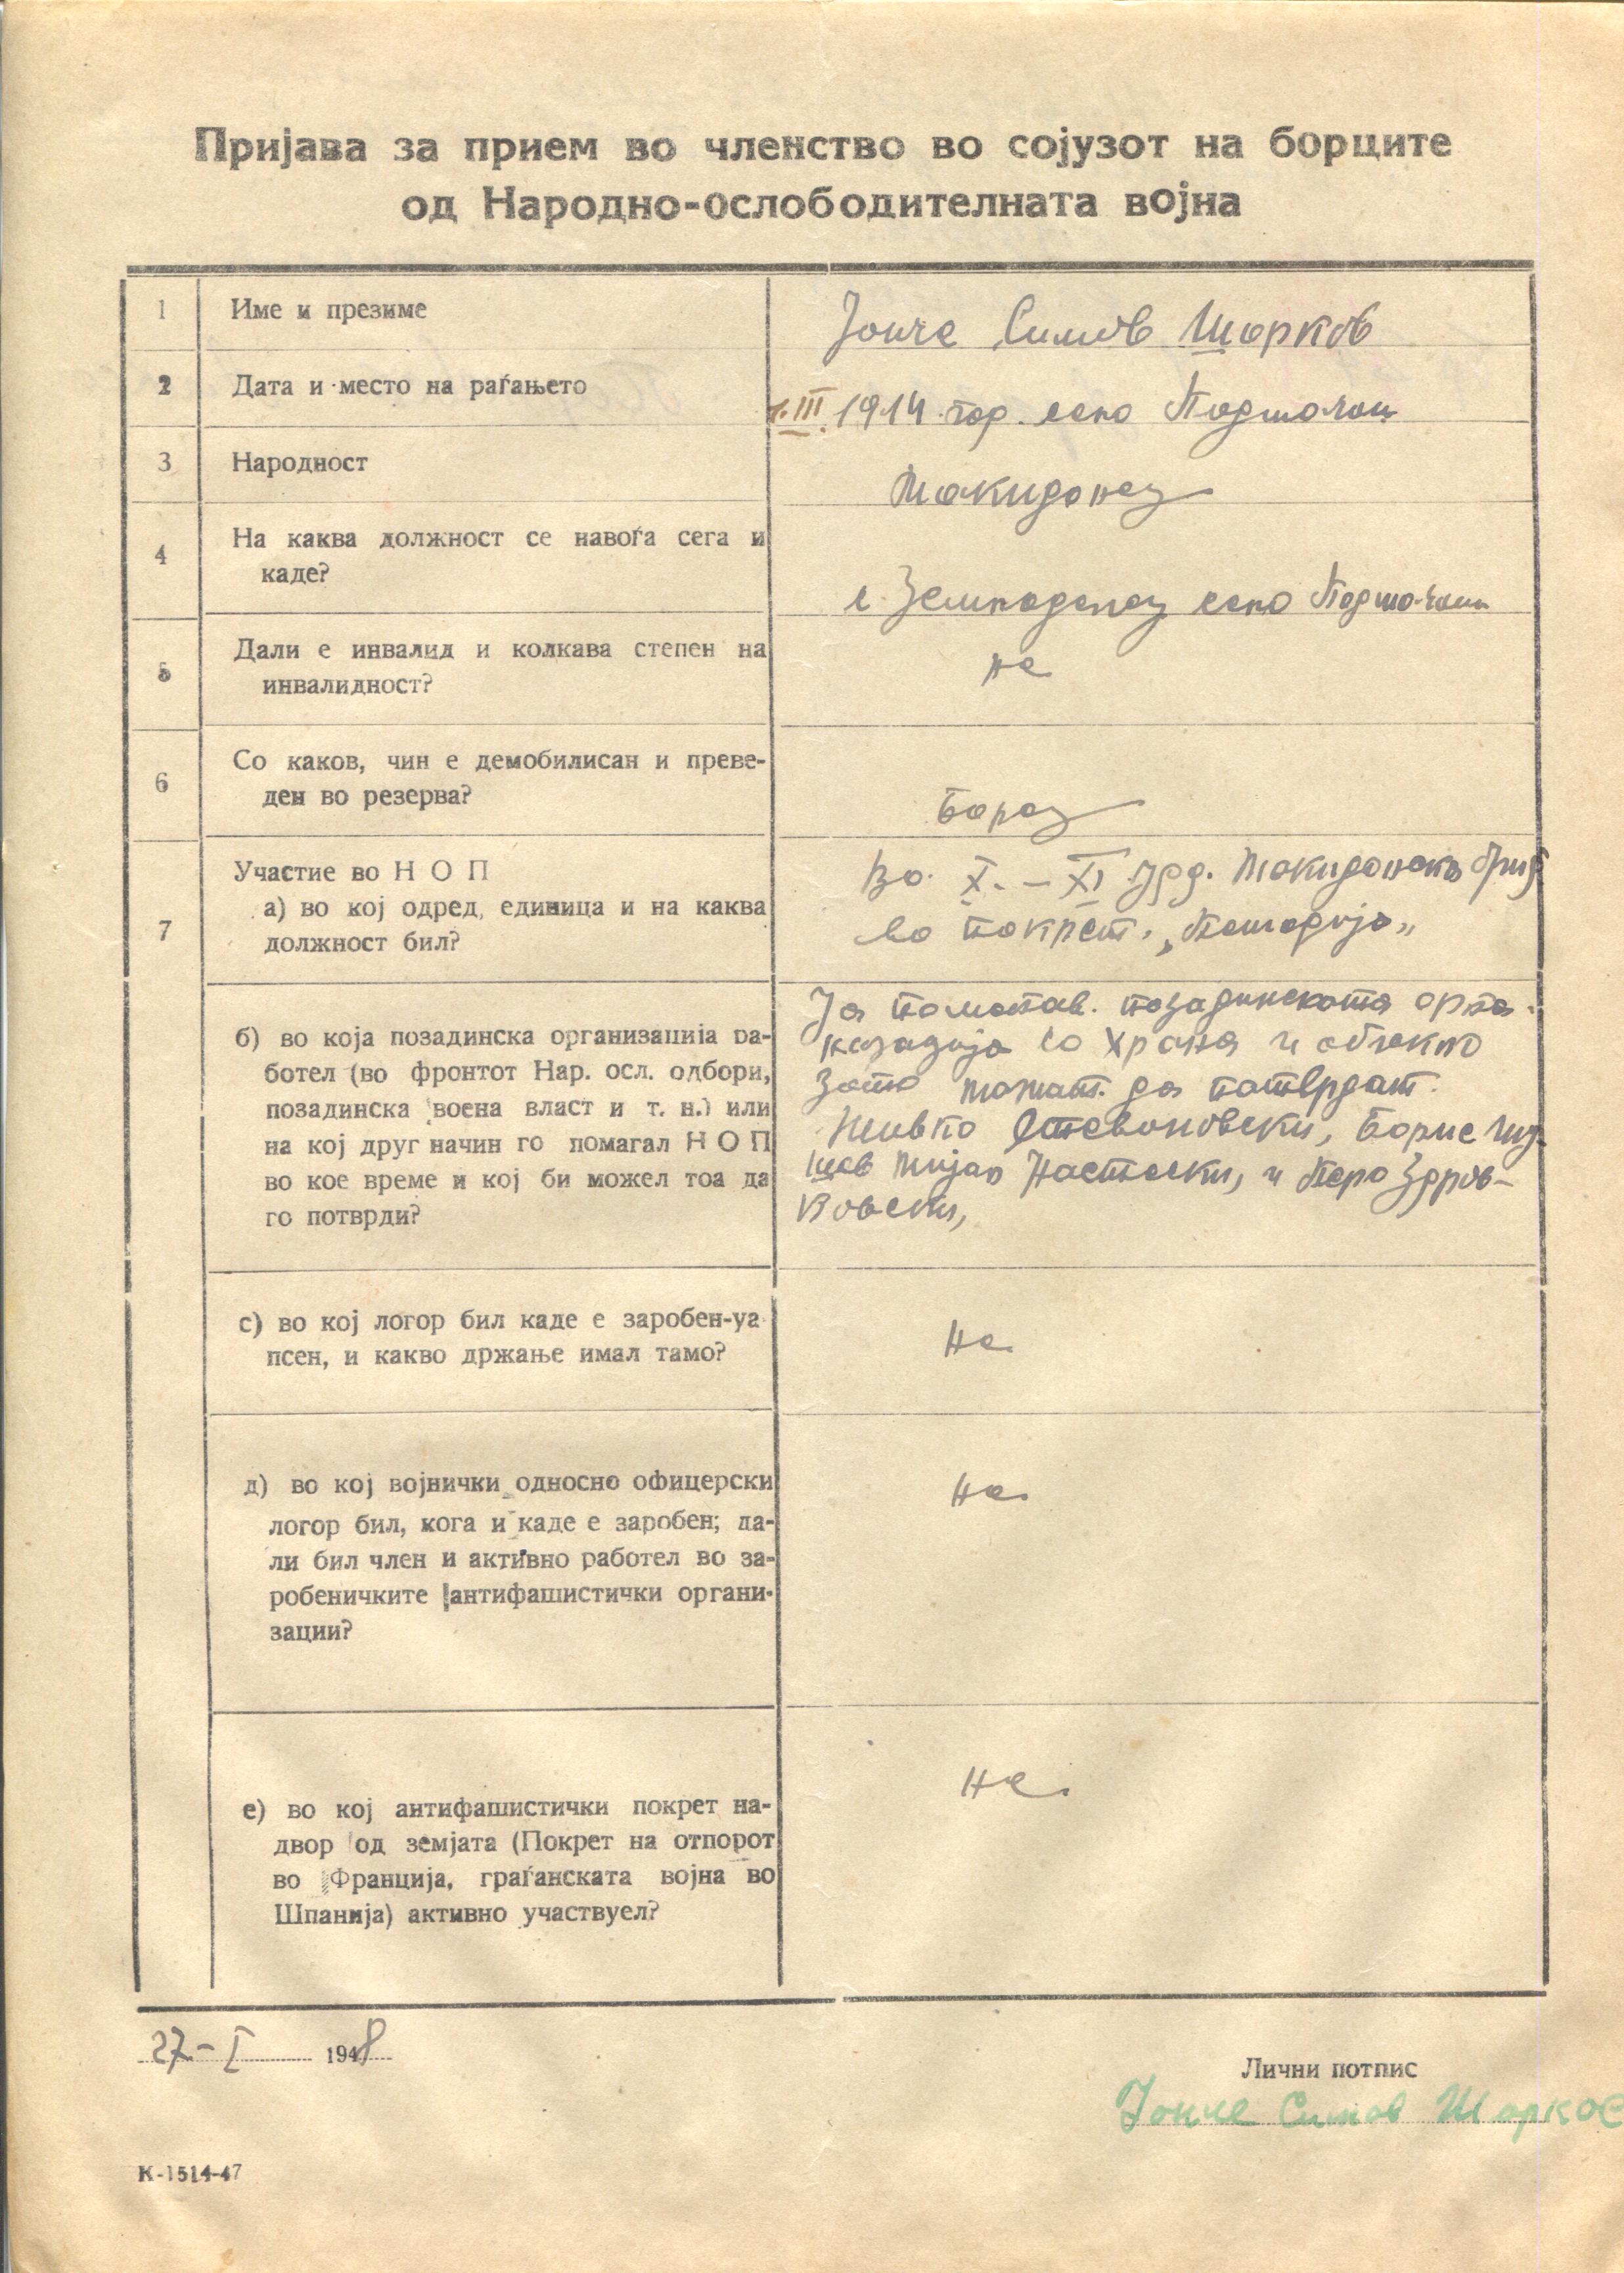 Пријава за прием во членство во сојузот на борците
од Народно-ослободителната војна
1 Име и презиме
Јонче Симов Шорков
2 Дата и место на раѓањето
1.III.1914 год. село Подмочани
3 Народност
Макидонец
4 На каква должност се навоѓа сега и
каде?
Земјоделец село Подмочани
5 Дали е инвалид и колкава степен на
инвалидност?
не
6 Со каков, чин е демобилисан и преве-
ден во резерва?
Борец
7 Участие во Н О П
а) во кој одред, единица и на каква
должност бил?
Во X. – XI Удд. Македонска бриг
во покрет. „Пешадија„
б) во која позадинска организација ра-
ботел (во фронтот Нар. осл. одбори,
позадинска воена власт и т. н.) или
на кој друг начин го помагал Н О П
во кое време и кој би можел тоа да
го потврди?
Ја помогав. позадинската орга-
низација со храна и облекло
зашто можат. да потврдат.
Живко Стевановски, Борис
Мијал Настески, и Перо Здров-
ковски,
с) во кој логор бил каде е заробен-уа
псен, и какво држање имал тамо?
Не
д) во кој војнички односно офицерски
логор бил, кога и каде е заробен; да-
ли бил член и активно работел во за-
робеничките антифашистички органи-
зации?
Не
е) во кој антифашистички покрет на-
двор од земјата (Покрет на отпорот
во Франција, граѓанската војна во
Шпанија) активно участвуел?
Не.
27-I 1948
Лични потпис
Јонче Симов Шорков
К-1514-47